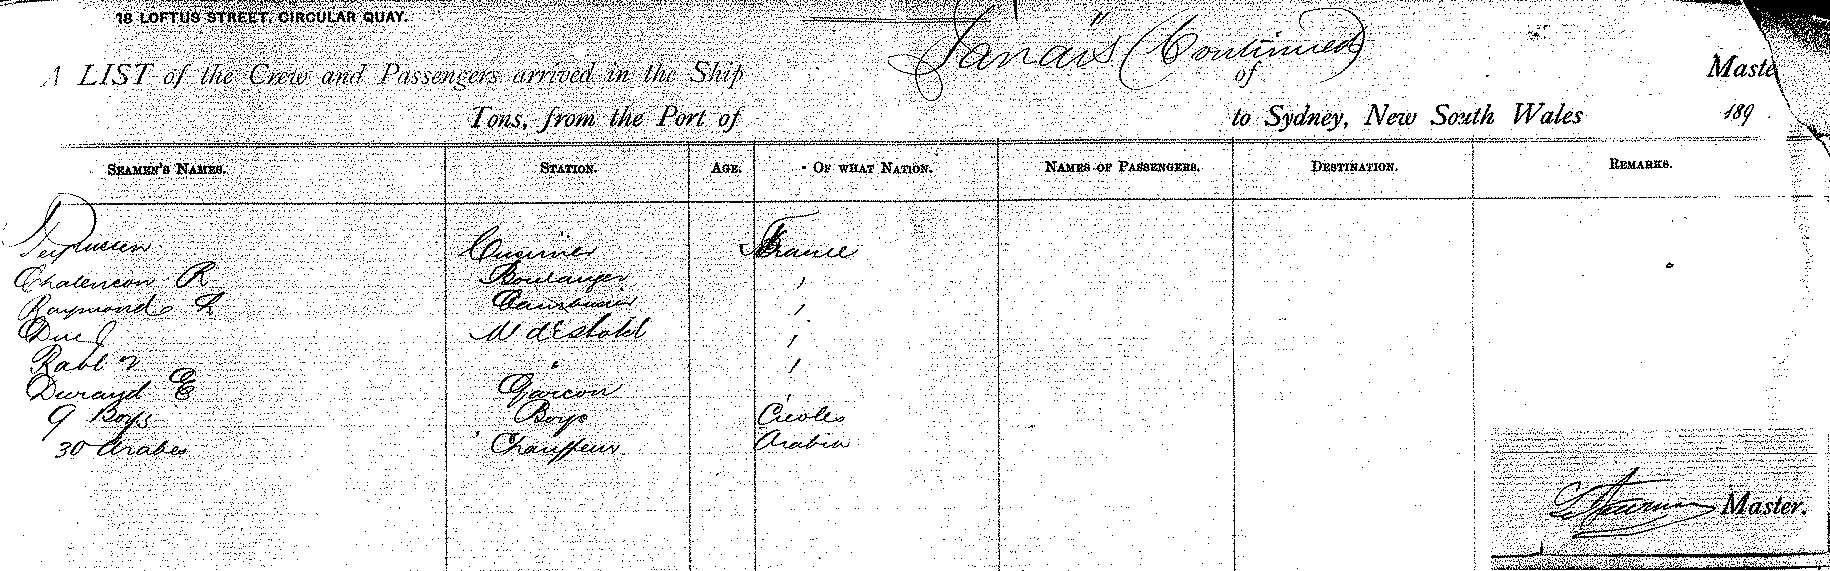 18 LOFTUS STREET, CIRCULAR QUAY.
Tanaïs (Continued)
A LIST of the Crew and Passengers arrived in the Ship of Maste
Tons, from the Port of to Sydney, New South Wales 189
SEAMEN'S NAMES. STATION. AGE. OF WHAT NATION. NAMES OF PASSENGERS. DESTINATION. REMARKS.
Cuisinier France
Chalencon R Boulanger "
Raymond L "
Duc J M d'hotel "
Rabl "
Durand E Garcon
9 Boys Boys Creoles
30 Arabes Chauffeur Arabia
Master.